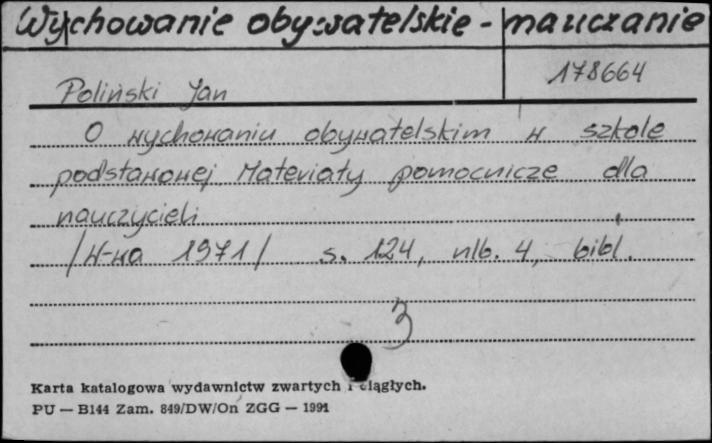 Wychowanie obywatelskie - nauczanie
178664
Poliński Jan
O wychowaniu obywatelskim w szkole
podstawowej. Materiały pomocnicze dla
nauczycieli
/W-wa 1971/ s. 124, nlb. 4, bibl.
3
Karta katalogowa wydawnictw zwartych i ciągłych.
PU — B144 Zam. 849/DW/On ZGG — 1991